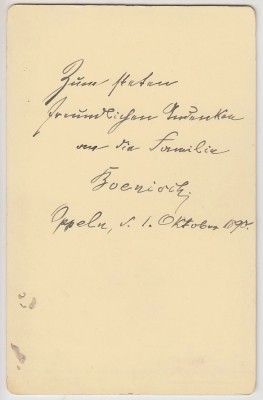 Zum steten
freundlichen Andenken
an die Familie
Boenisch.
Oppeln, d. 1. Oktober